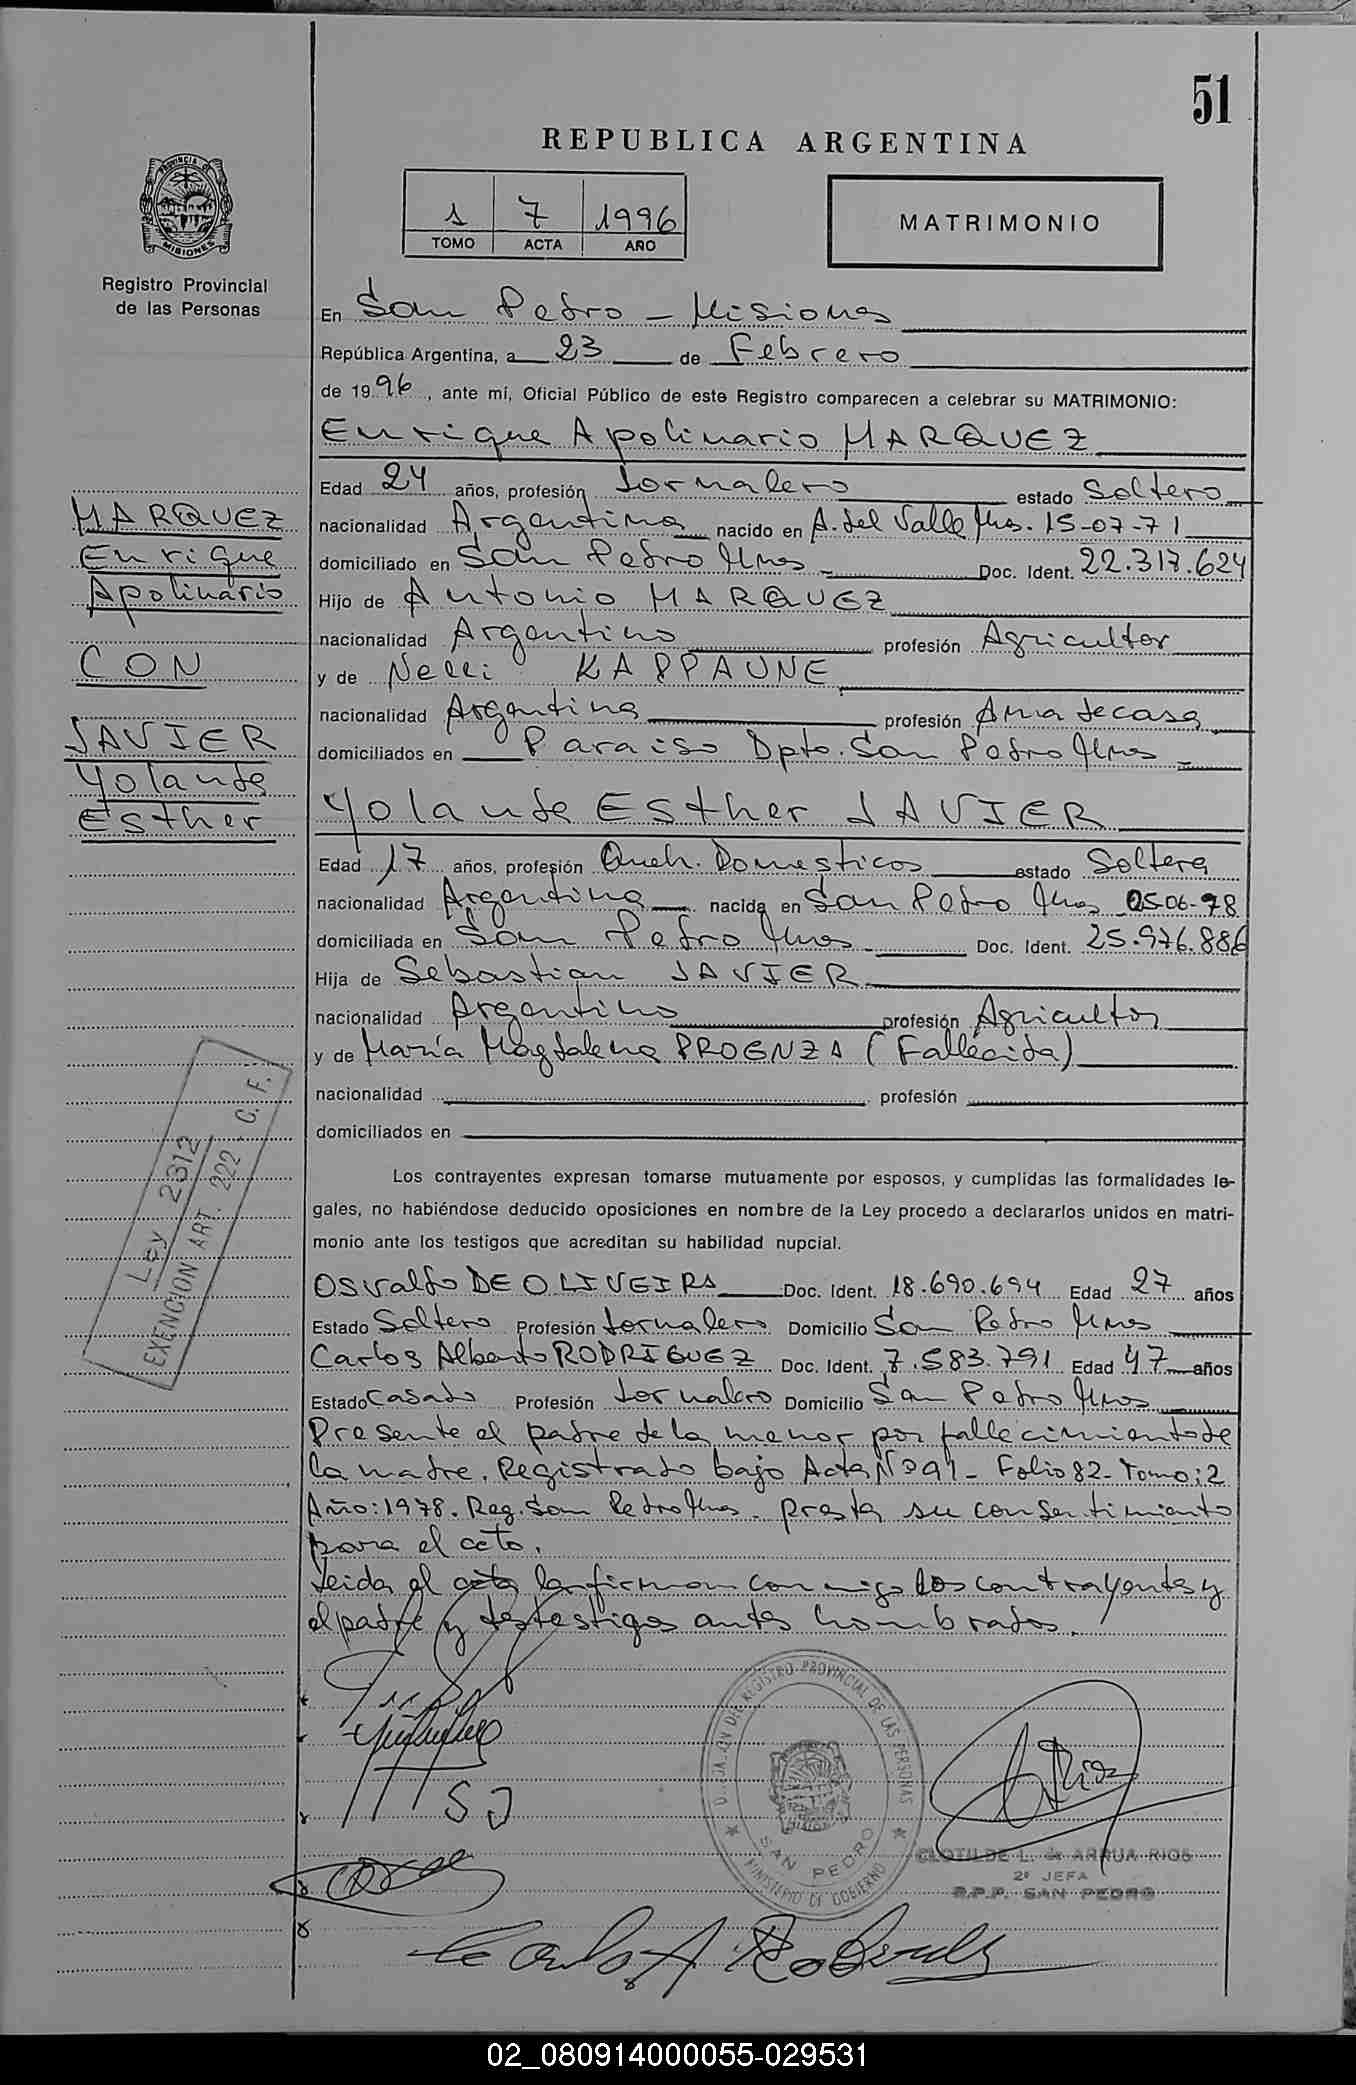 51
REPUBLICA ARGENTINA
PROVINCIA D MISIONES
1 7 1996
TOMO ACTA AÑO
MATRIMONIO
Registro Provincial
de las Personas
En San Pedro - Misiones
República Argentina, a 23 de Febrero
de 1996, ante mí, Oficial Público de este Registro comparecen a celebrar su MATRIMONIO:
Enrique Apolinario MARQUEZ
Edad 24 años, profesión Jornalero estado Soltero
nacionalidad Argentina nacido en A. del Valle Mnes. 15-07-71
domiciliado en San Pedro Mnes - Doc. Ident. 22.317.624
Hijo de Antonio MARQUEZ
nacionalidad Argentino profesión Agricultor
y de Nelli KAPPAUNE
nacionalidad Argentina profesión Ama de casa
domiciliados en Paraiso Dpto. San Pedro Mnes -
MARQUEZ
Enrique
Apolinario
CON
JAVIER
Yolanda
Esther
Yolanda Esther JAVIER
Edad 17 años, profesión Queh. Domesticos estado Soltera
nacionalidad Argentina nacida en San Pedro Mnes 05-06-78
domiciliada en San Pedro Mnes - Doc. Ident. 25.976.886
Hija de Sebastian JAVIER
nacionalidad Argentino profesión Agricultor
y de María Magdalena PROENZA (Fallecida)
nacionalidad profesión
domiciliados en
Ley 2312
EXENCION ART. 222 - C. F.
Los contrayentes expresan tomarse mutuamente por esposos, y cumplidas las formalidades le-
gales, no habiéndose deducido oposiciones en nombre de la Ley procedo a declararlos unidos en matri-
monio ante los testigos que acreditan su habilidad nupcial.
Osvaldo DE OLIVEIRA Doc. Ident. 18.690.694 Edad 27 años
Estado Soltero Profesión Jornalero Domicilio San Pedro Mnes
Carlos Alberto RODRIGUEZ Doc. Ident. 7.583.791 Edad 47 años
Estado Casado Profesión Jornalero Domicilio San Pedro Mnes
Presente el padre de la menor por fallecimiento de
la madre. Registrado bajo Acta Nº 91 - Folio 82 - Tomo: 2
Año: 1978. Reg. San Pedro Mnes. presta su consentimiento
para el acto.
Leida el acta la firman conmigo los contrayentes y
el padre y testigos antes nombrados.
S J
REGISTRO PROVINCIAL DE LAS PERSONAS
SAN PEDRO
MINISTERIO DE GOBIERNO
CLOTILDE L. de ARRUA RIOS
2º JEFA
R.P.P. SAN PEDRO
02_080914000055-029531